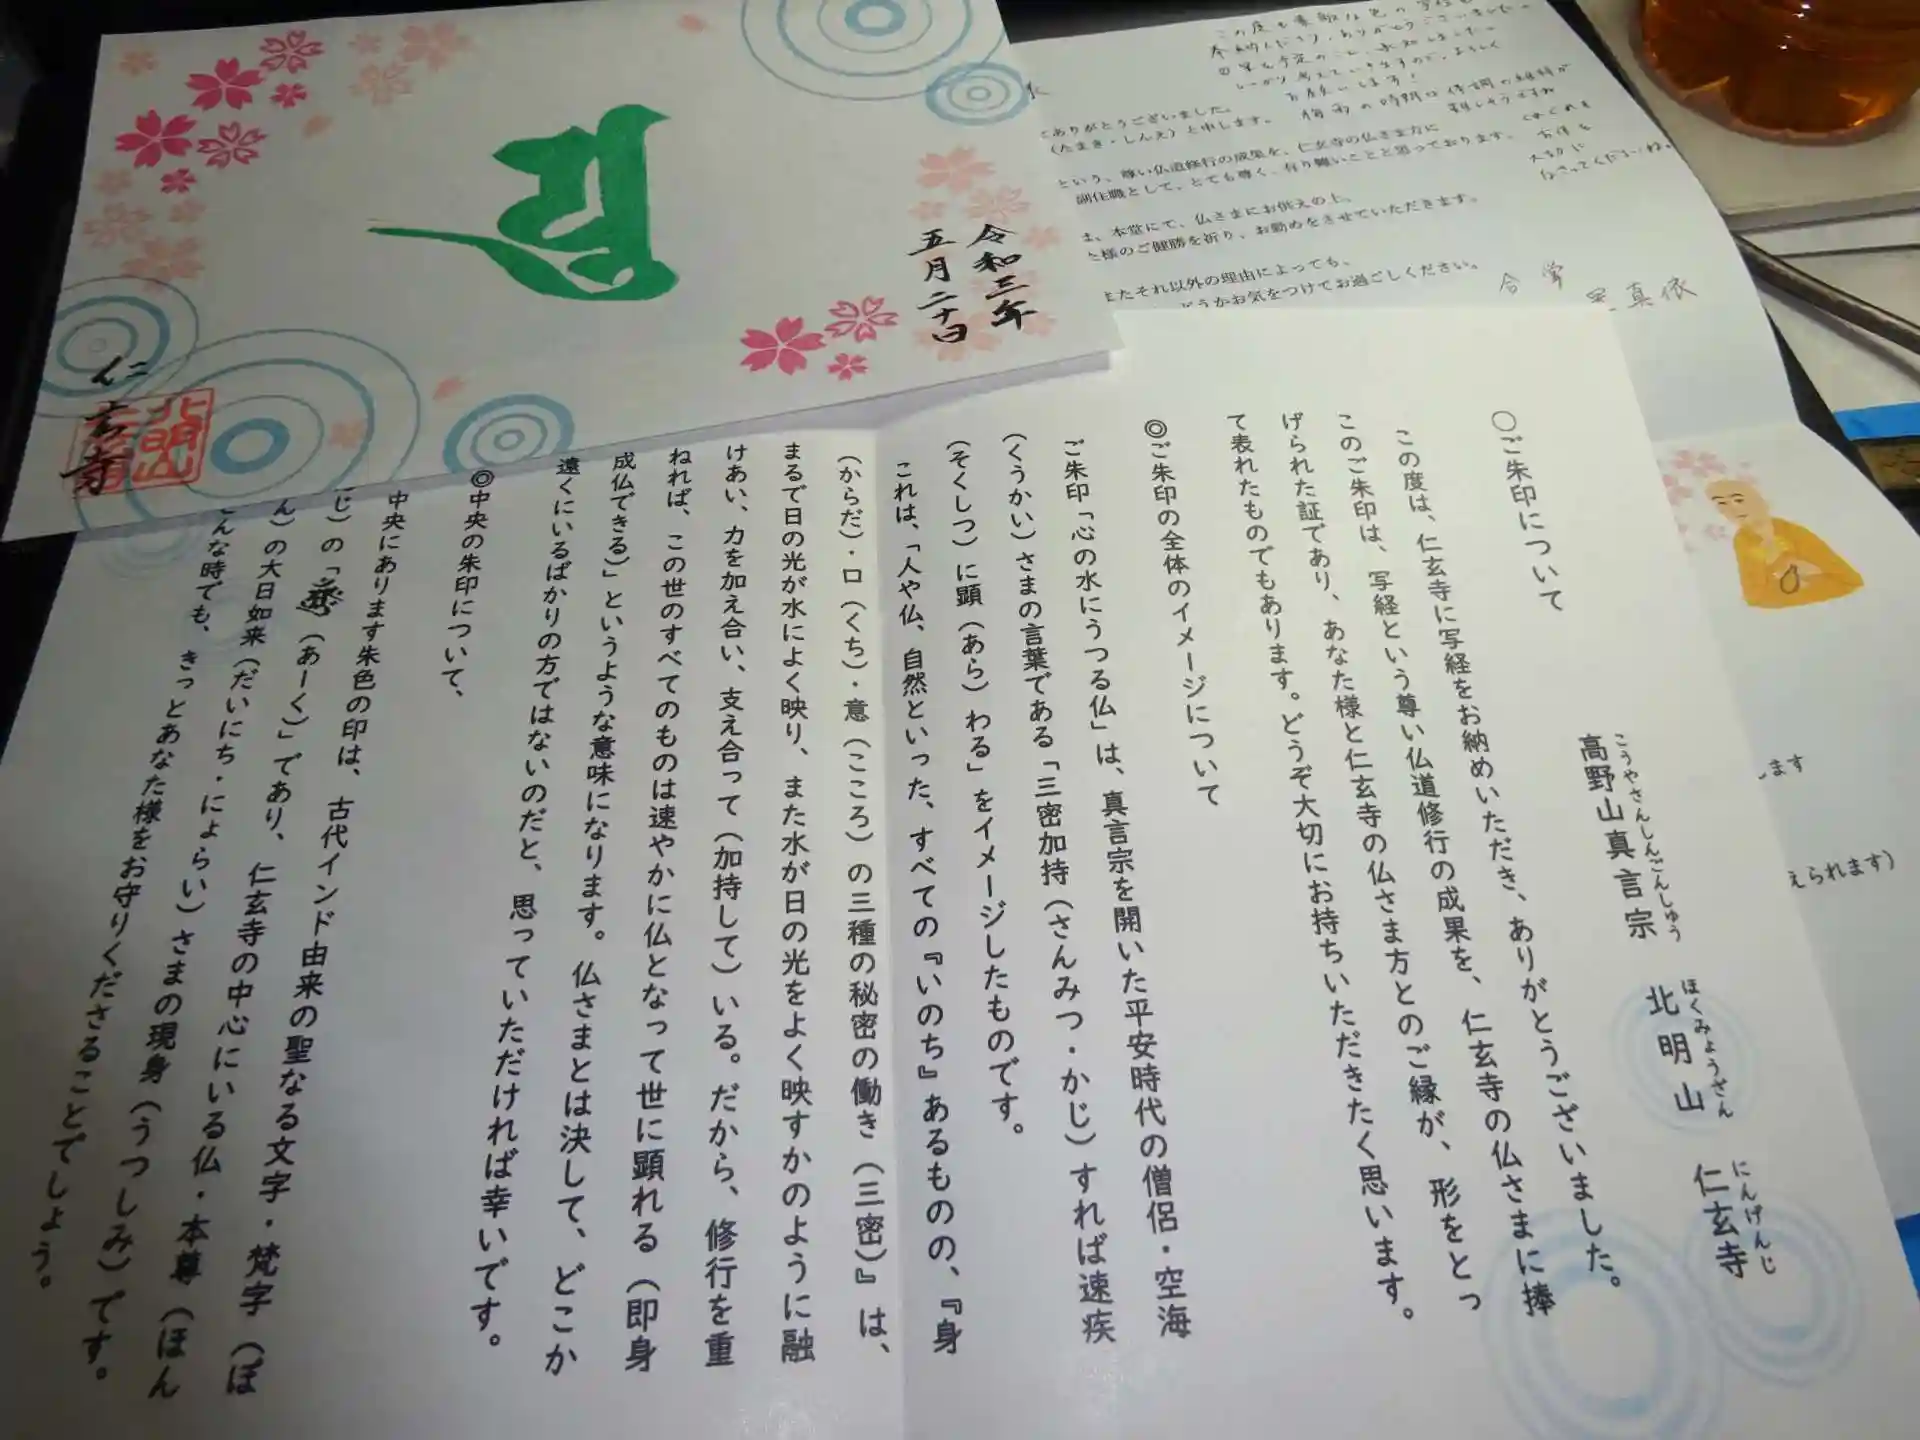 令和三年
五月二十日
仁玄寺
ありがとうございました。
(たまき・しんえ)と申します。
という、尊い仏道修行の成果を、仁玄寺の仏さま方に
副住職として、とても尊く、有り難いことと思っております。
ま、本堂にて、仏さまにお供えの上、
た様のご健勝を祈り、お勤めをさせていただきます。
またそれ以外の理由によっても、
どうかお気をつけてお過ごしください。
合掌
真依
○ご朱印について
高野山真言宗 北明山 仁玄寺
こうやさんしんごんしゅう ほくみょうざん にんげんじ
この度は、仁玄寺に写経をお納めいただき、ありがとうございました。
このご朱印は、写経という尊い仏道修行の成果を、仁玄寺の仏さまに捧
げられた証であり、あなた様と仁玄寺の仏さま方とのご縁が、形をとっ
て表れたものでもあります。どうぞ大切にお持ちいただきたく思います。
◎ご朱印の全体のイメージについて
ご朱印「心の水にうつる仏」は、真言宗を開いた平安時代の僧侶・空海
(くうかい)さまの言葉である「三密加持(さんみつ・かじ)すれば速疾
(そくしつ)に顕(あら)わる」をイメージしたものです。
これは、「人や仏、自然といった、すべての『いのち』あるものの、『身
(からだ)・口(くち)・意(こころ)の三種の秘密の働き(三密)』は、
まるで日の光が水によく映り、また水が日の光をよく映すかのように融
けあい、力を加え合い、支え合って(加持して)いる。だから、修行を重
ねれば、この世のすべてのものは速やかに仏となって世に顕れる(即身
成仏できる)」というような意味になります。仏さまとは決して、どこか
遠くにいるばかりの方ではないのだと、思っていただければ幸いです。
◎中央の朱印について、
中央にあります朱色の印は、古代インド由来の聖なる文字・梵字(ぼ
じ)の「(あーく)」であり、仁玄寺の中心にいる仏・本尊(ほん
ん)の大日如来(だいにち・にょらい)さまの現身(うつしみ)です。
こんな時でも、きっとあなた様をお守りくださることでしょう。
します
えられます)